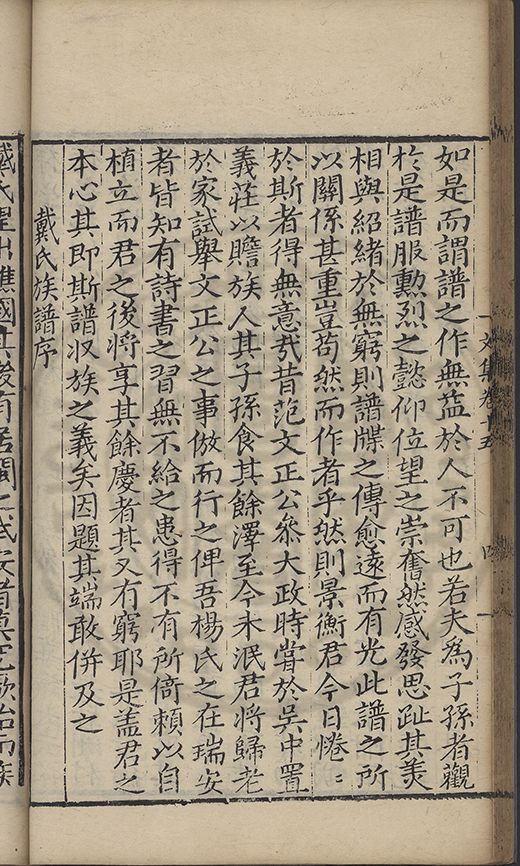 文集卷十五
四
如是而謂譜之作無益於人不可也若夫為子孫者觀
於是譜服勲烈之懿仰位望之崇奮然感發思趾其美
相與紹緒於無窮則譜牒之傳愈遠而有光此譜之所
以關係甚重豈苟然而作者乎然則景衡君今日惓〻
於斯者得無意㢤昔范文正公叅大政時甞於吴中置
義莊以贍族人其子孫食其餘澤至今未泯君將歸老
於家試舉文正公之事倣而行之俾吾楊氏之在瑞安
者皆知有詩書之習無不給之患得不有所倚頼以自
植立而君之後將享其餘慶者其又有窮耶是盖君之
本心其即斯譜収族之義矣因題其端敢併及之
戴氏族譜序
戴氏望出譙國其後有居閩之